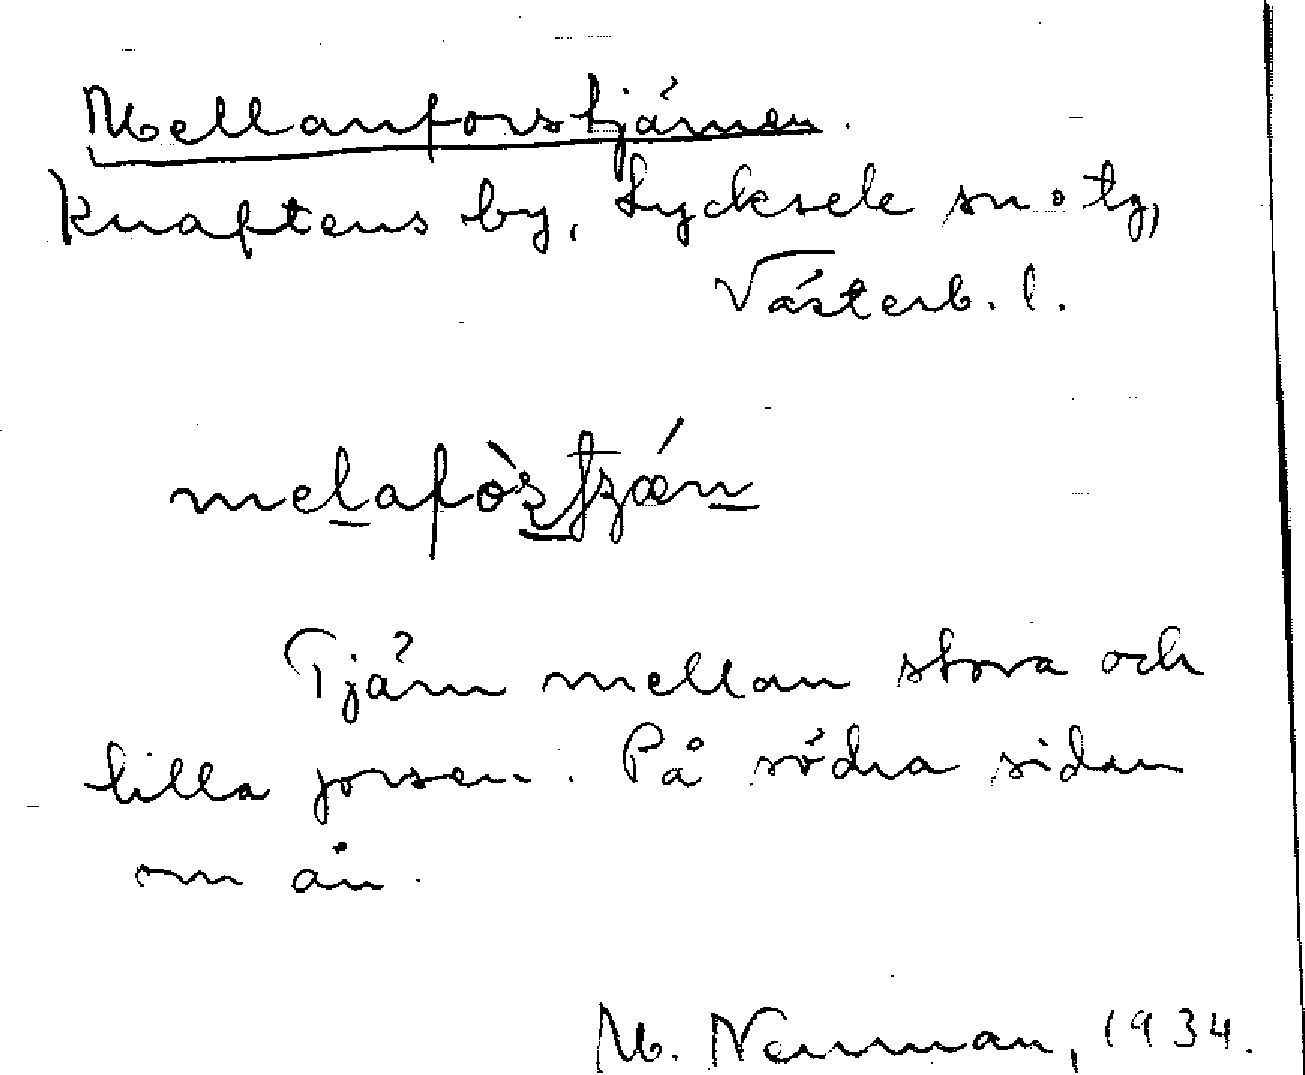 Mellanforstjärnen.
Knaftens by, Lycksele sn o tg,
Västerb. l.
Tjärn mellan stora och
lilla forsen. På södra sidan
om ån.
M. Nenman, 1934.